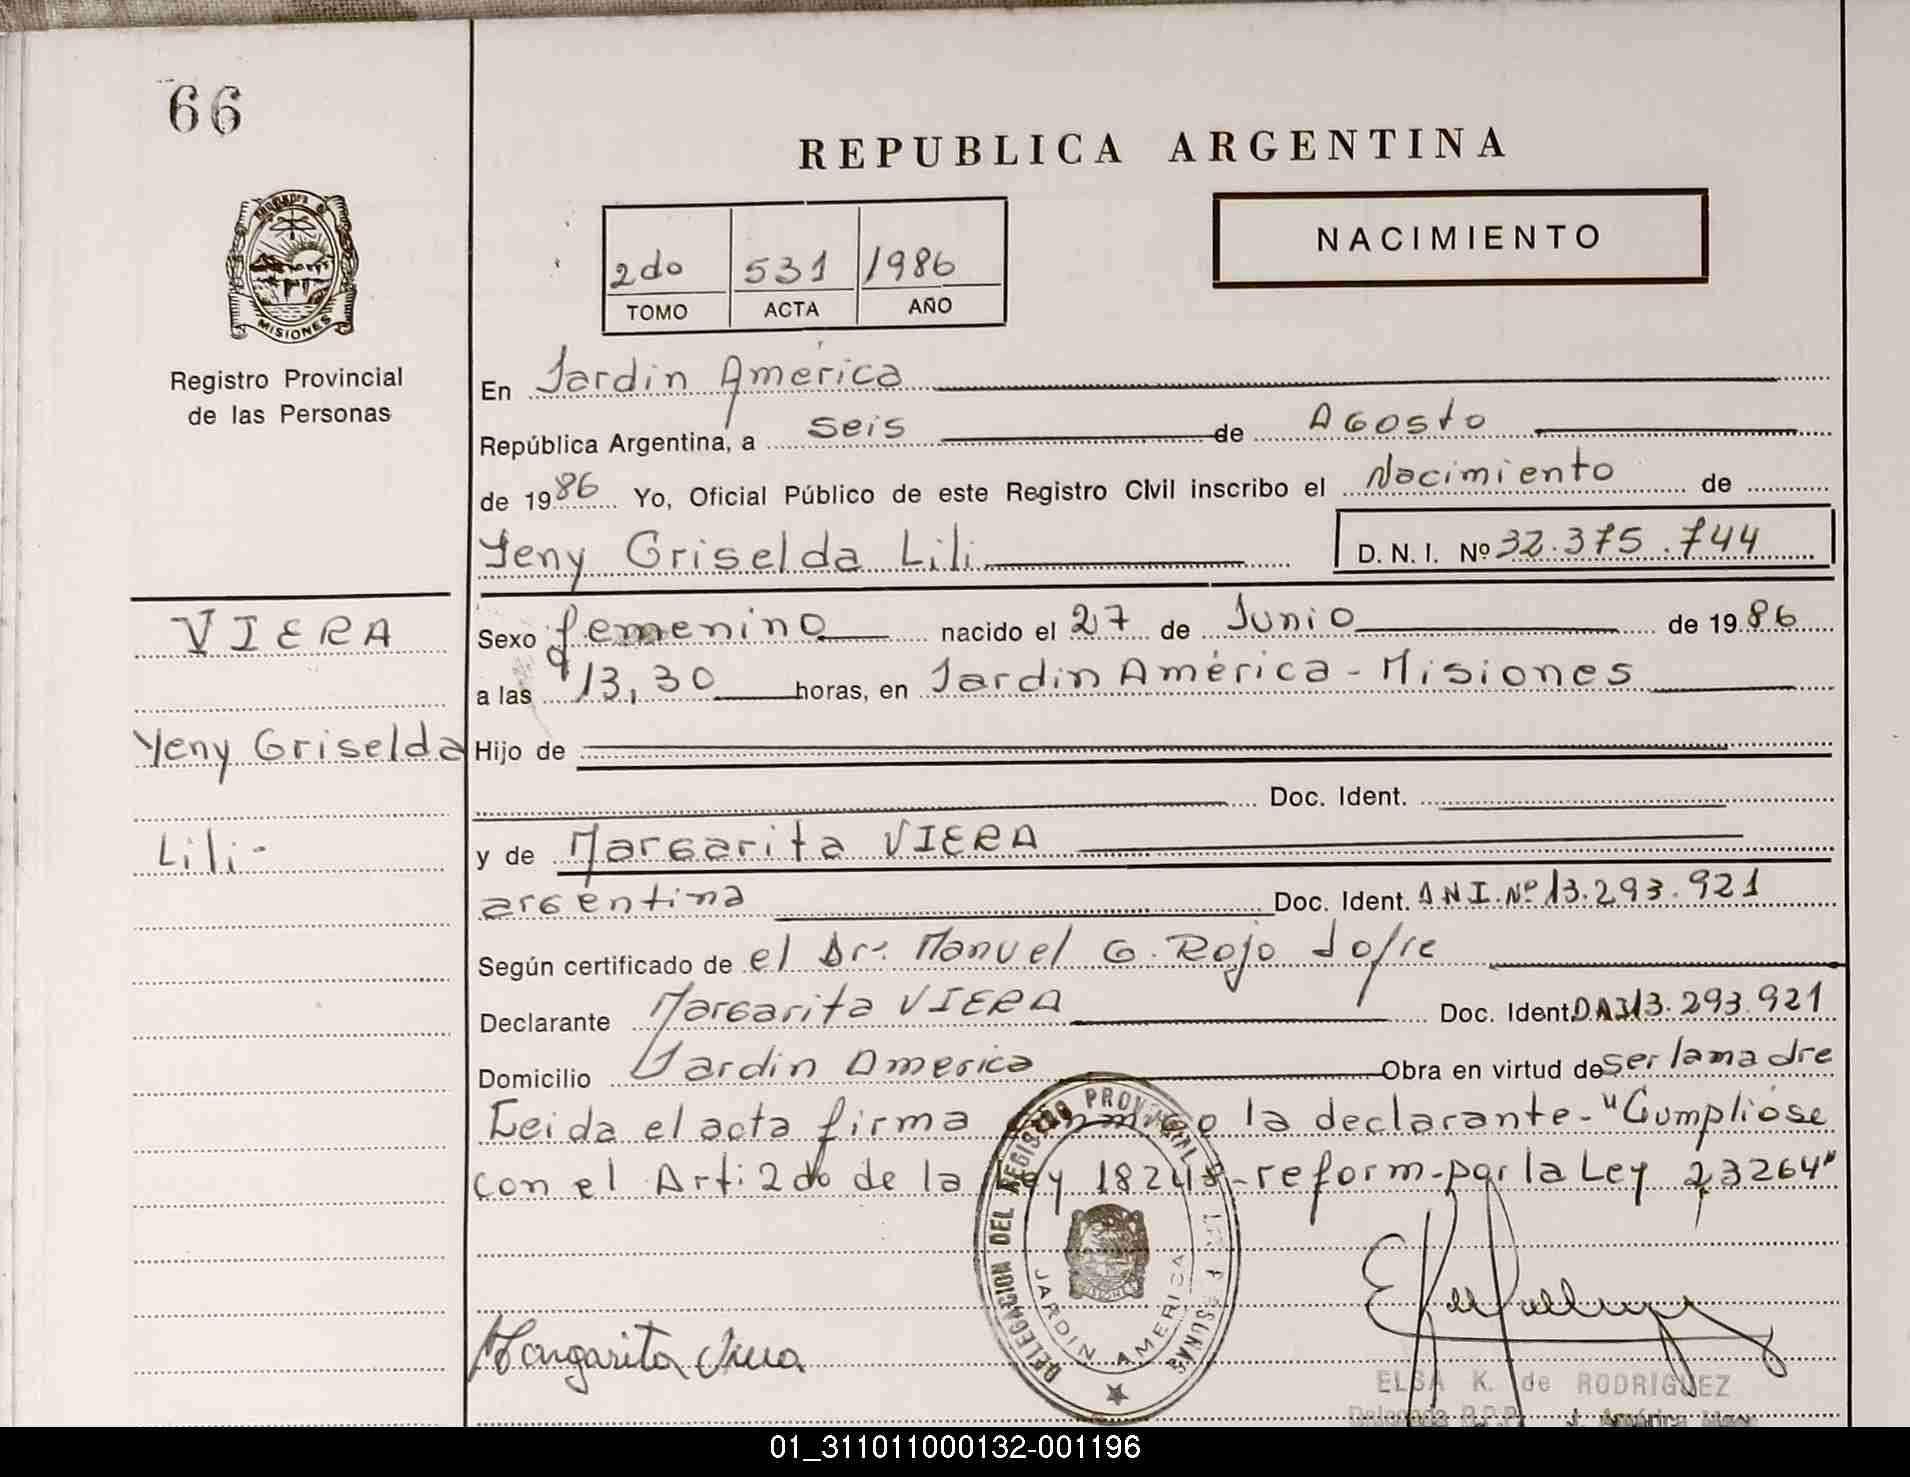 66
REPUBLICA ARGENTINA
NACIMIENTO
2do 531 1986
TOMO ACTA AÑO
MISIONES
Registro Provincial
de las Personas
En Jardin América
República Argentina, a seis de Agosto
de 1986 Yo, Oficial Público de este Registro Civil inscribo el Nacimiento de
Yeny Griselda Lili D. N. I. Nº 32.375.744
VIERA
Sexo femenino nacido el 27 de Junio de 1986
a las 13,30 horas, en Jardin América - Misiones
Yeny Griselda
Hijo de
Doc. Ident.
Lili-
y de Margarita VIERA
argentina Doc. Ident. DNI. Nº 13.293.921
Según certificado de el Dr. Manuel G. Rojo Jofre
Declarante Margarita VIERA Doc. Ident. 13.293.921
Domicilio Jardin America Obra en virtud de ser la madre
Leida el acta firma la declarante- "Cumpliose
con el Art: 2do de la Ley 18248-reform-por la Ley 23264"
DELEGACION DEL REGISTRO PROVINCIAL DE LAS PERSONAS
JARDIN AMERICA
Margarita Viera
ELSA K. de RODRIGUEZ
Delegada R.P.P. J. América
01_311011000132-001196